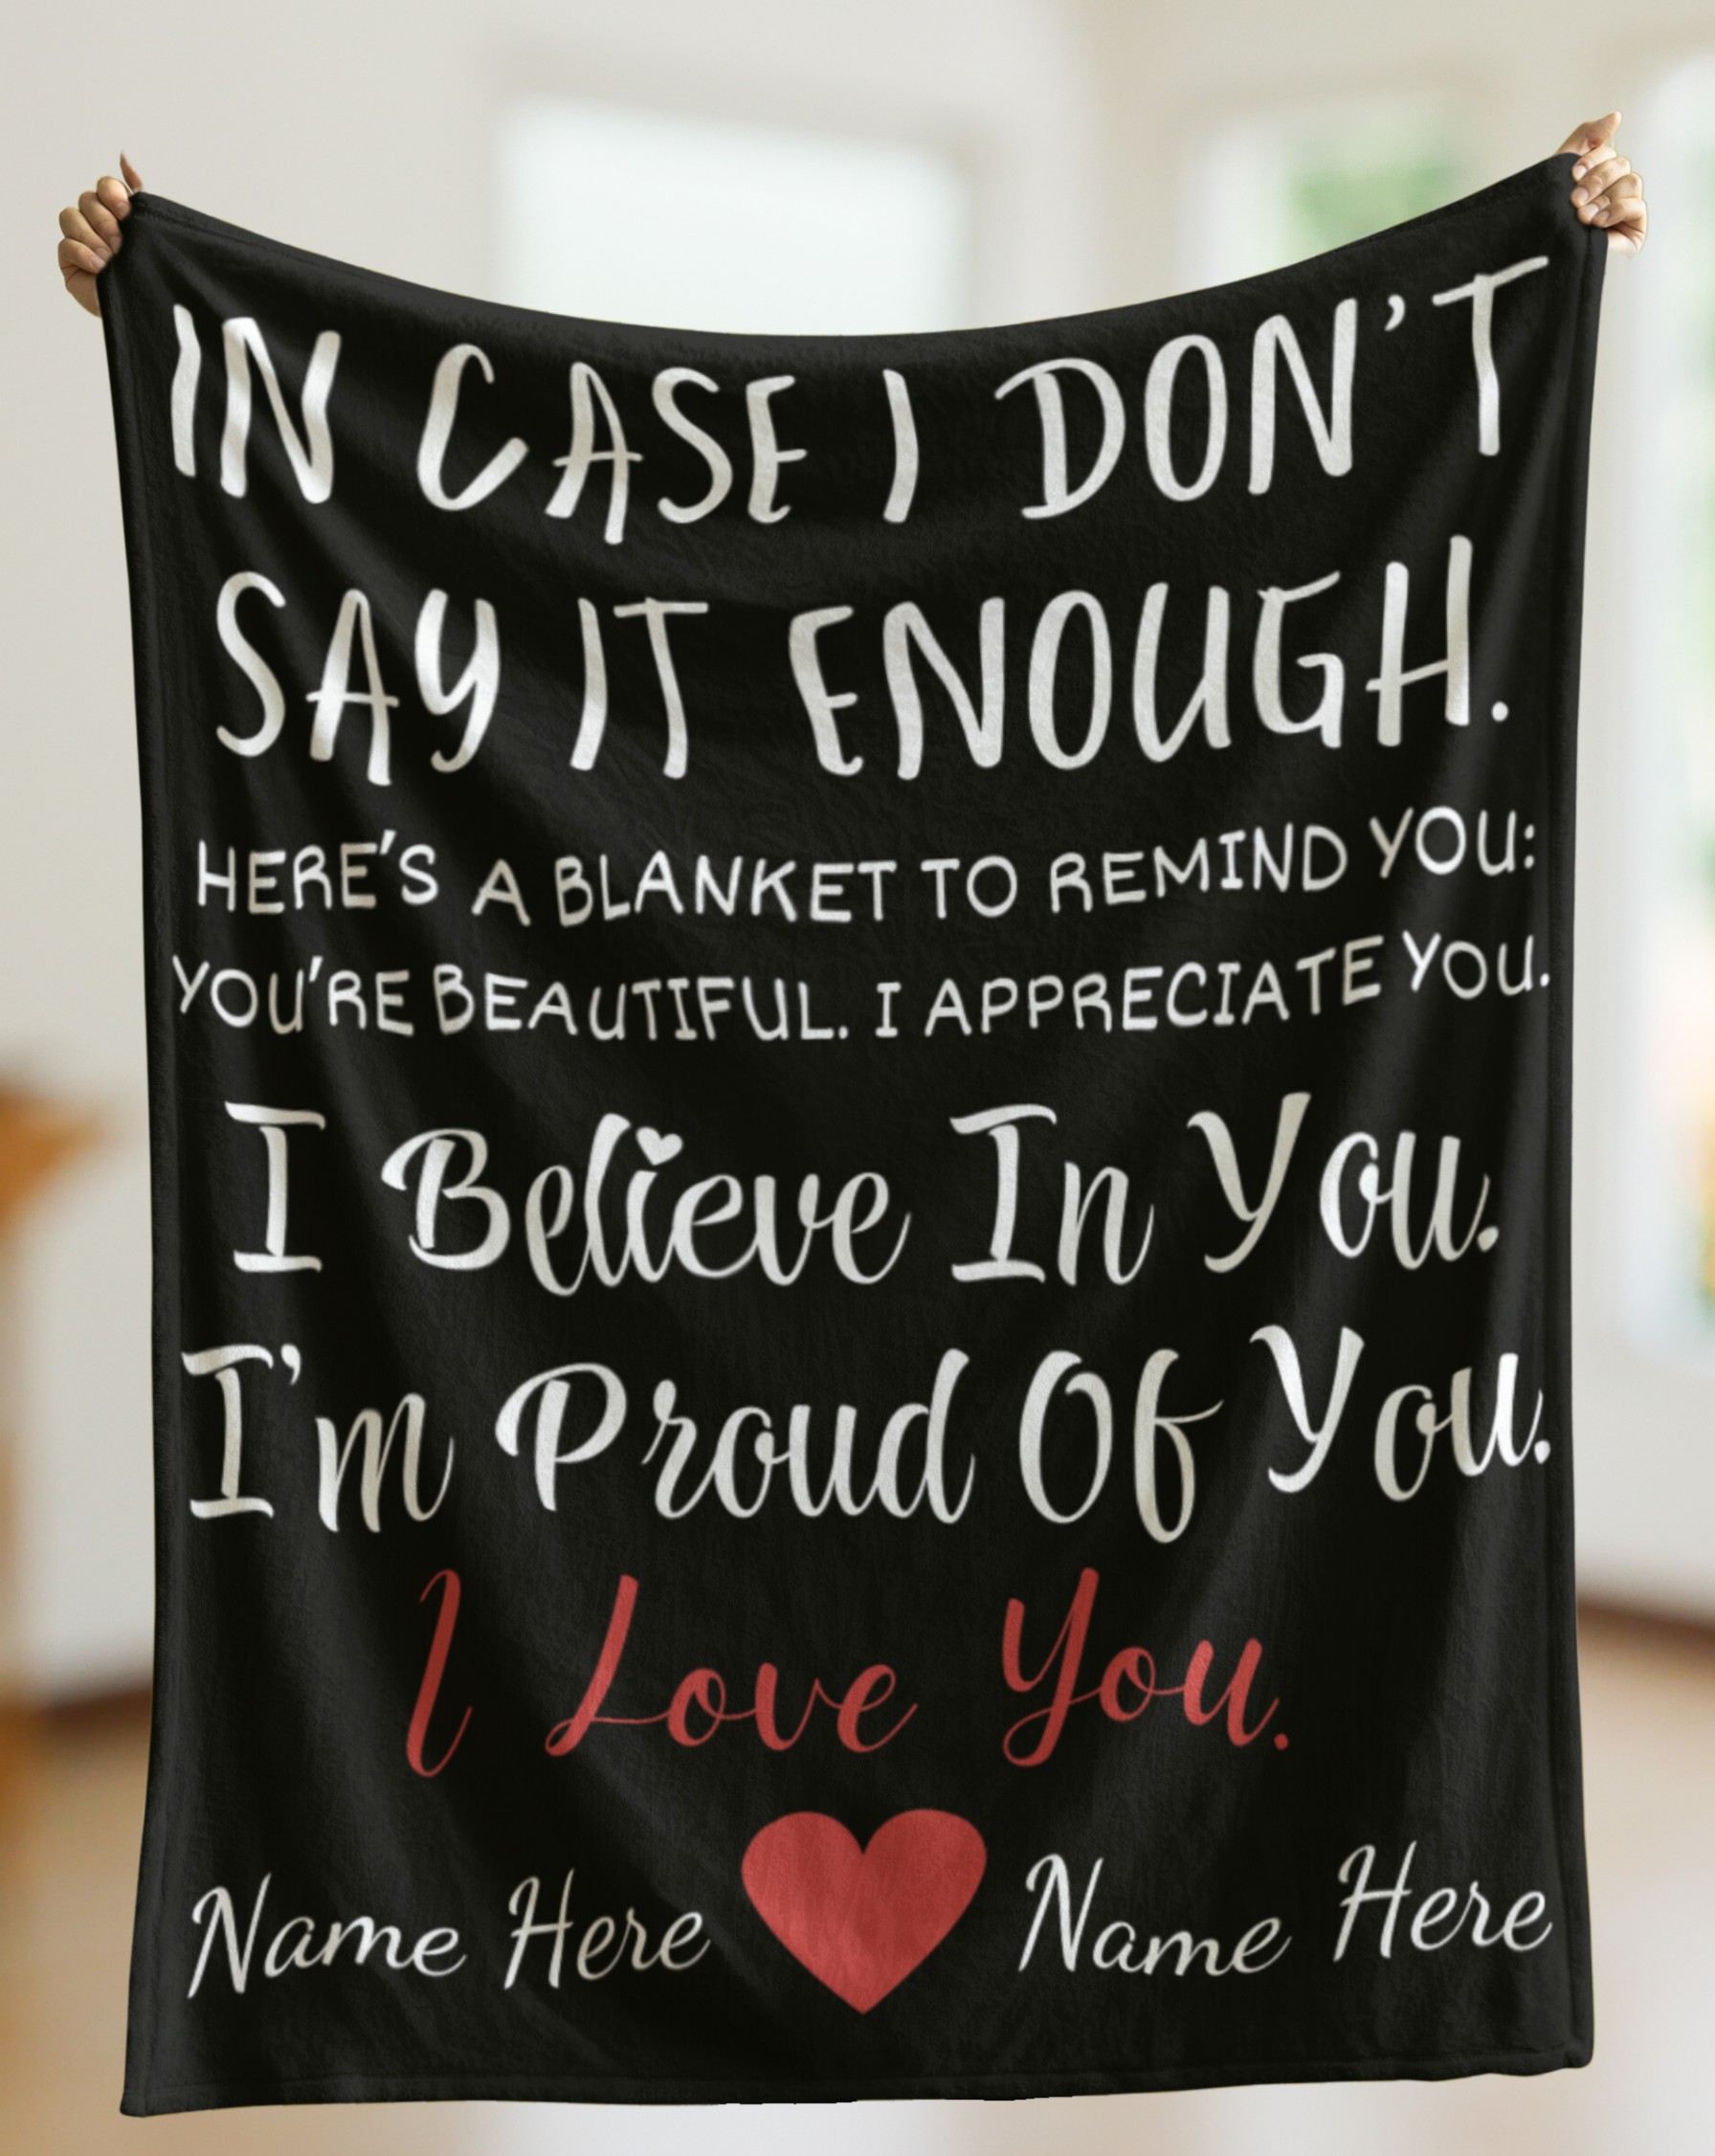 IN CASE I DON'T
SAY IT ENOUGH.
HERE'S A BLANKET TO REMIND YOU:
YOU'RE BEAUTIFUL. I APPRECIATE YOU.
I Believe In You.
I'm Proud Of You.
I Love You.
Name Here Name Here